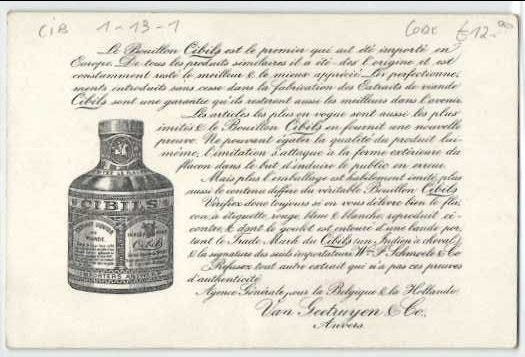 CiB 1-13-1 CODE £12.00
Le Bouillon Cibils est le premier qui ait été importé en
Europe. De tous les produits similaires il a été dès l'origine et est
constamment resté le meilleur & le mieux apprécié. Les perfectionne-
ments introduits sans cesse dans la fabrication des Extraits de viande
Cibils sont une garantie qu'ils resteront aussi les meilleurs dans l'avenir.
Les articles les plus en vogue sont aussi les plus
imités & le Bouillon Cibils en fournit une nouvelle
preuve. Ne pouvant égaler la qualité du produit lui-
même, l'imitation s'attaque à la forme extérieure du
flacon dans le but d'induire le public en erreur.
Mais plus l'emballage est habilement imité, plus
aussi le contenu diffère du véritable Bouillon Cibils.
Vérifiez donc toujours si on vous délivre bien le fla-
con à étiquette rouge, bleue & blanche, reproduit ci-
contre, & dont le goulot est entouré d'une bande por-
tant le Trade Mark du Cibils (un Indien à cheval)
& la signature des seuls importateurs Wm. P. Schmoele & Co
Refusez tout autre extrait qui n'a pas ces preuves
d'authenticité.
Agence Générale pour la Belgique & la Hollande
Van Geetruyen & Co.,
Anvers
CIBILS
VIANDE
Cibils